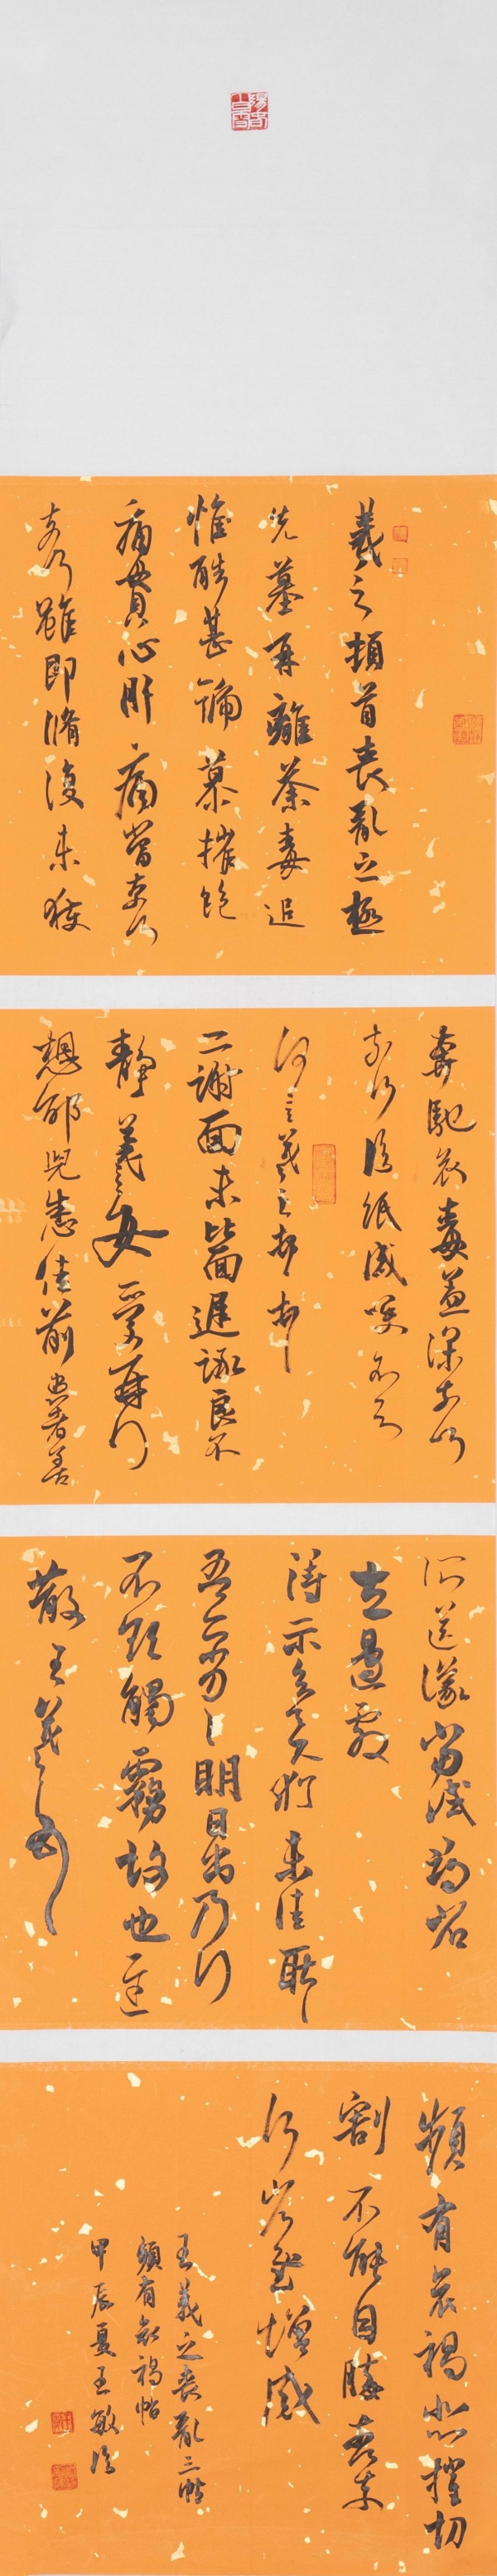 羲之頓首喪亂之極
先墓再離荼毒追
惟酷甚號慕摧絕
痛貫心肝痛當奈何
奈何雖即脩復未獲
奔馳哀毒益深奈何
奈何臨紙感哽不知
何言羲之頓首頓首
二謝面未比面遲詠良不
靜羲之女愛再拜
想邰兒悉佳前患者善
所送議當試尋省
左邊劇
得示知足下猶未佳耿耿
吾亦劣劣明日出乃行
不欲觸霧故也遲
散王羲之頓首
頻有哀禍悲摧切
割不能自勝奈何奈
何省慰增感
王羲之喪亂三帖
頻有哀禍帖
甲辰夏王敏臨